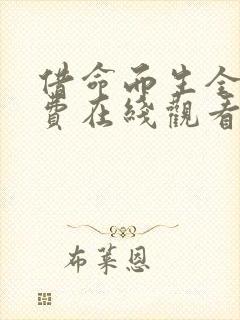 借命而生全
費在綫觀看
布萊恩